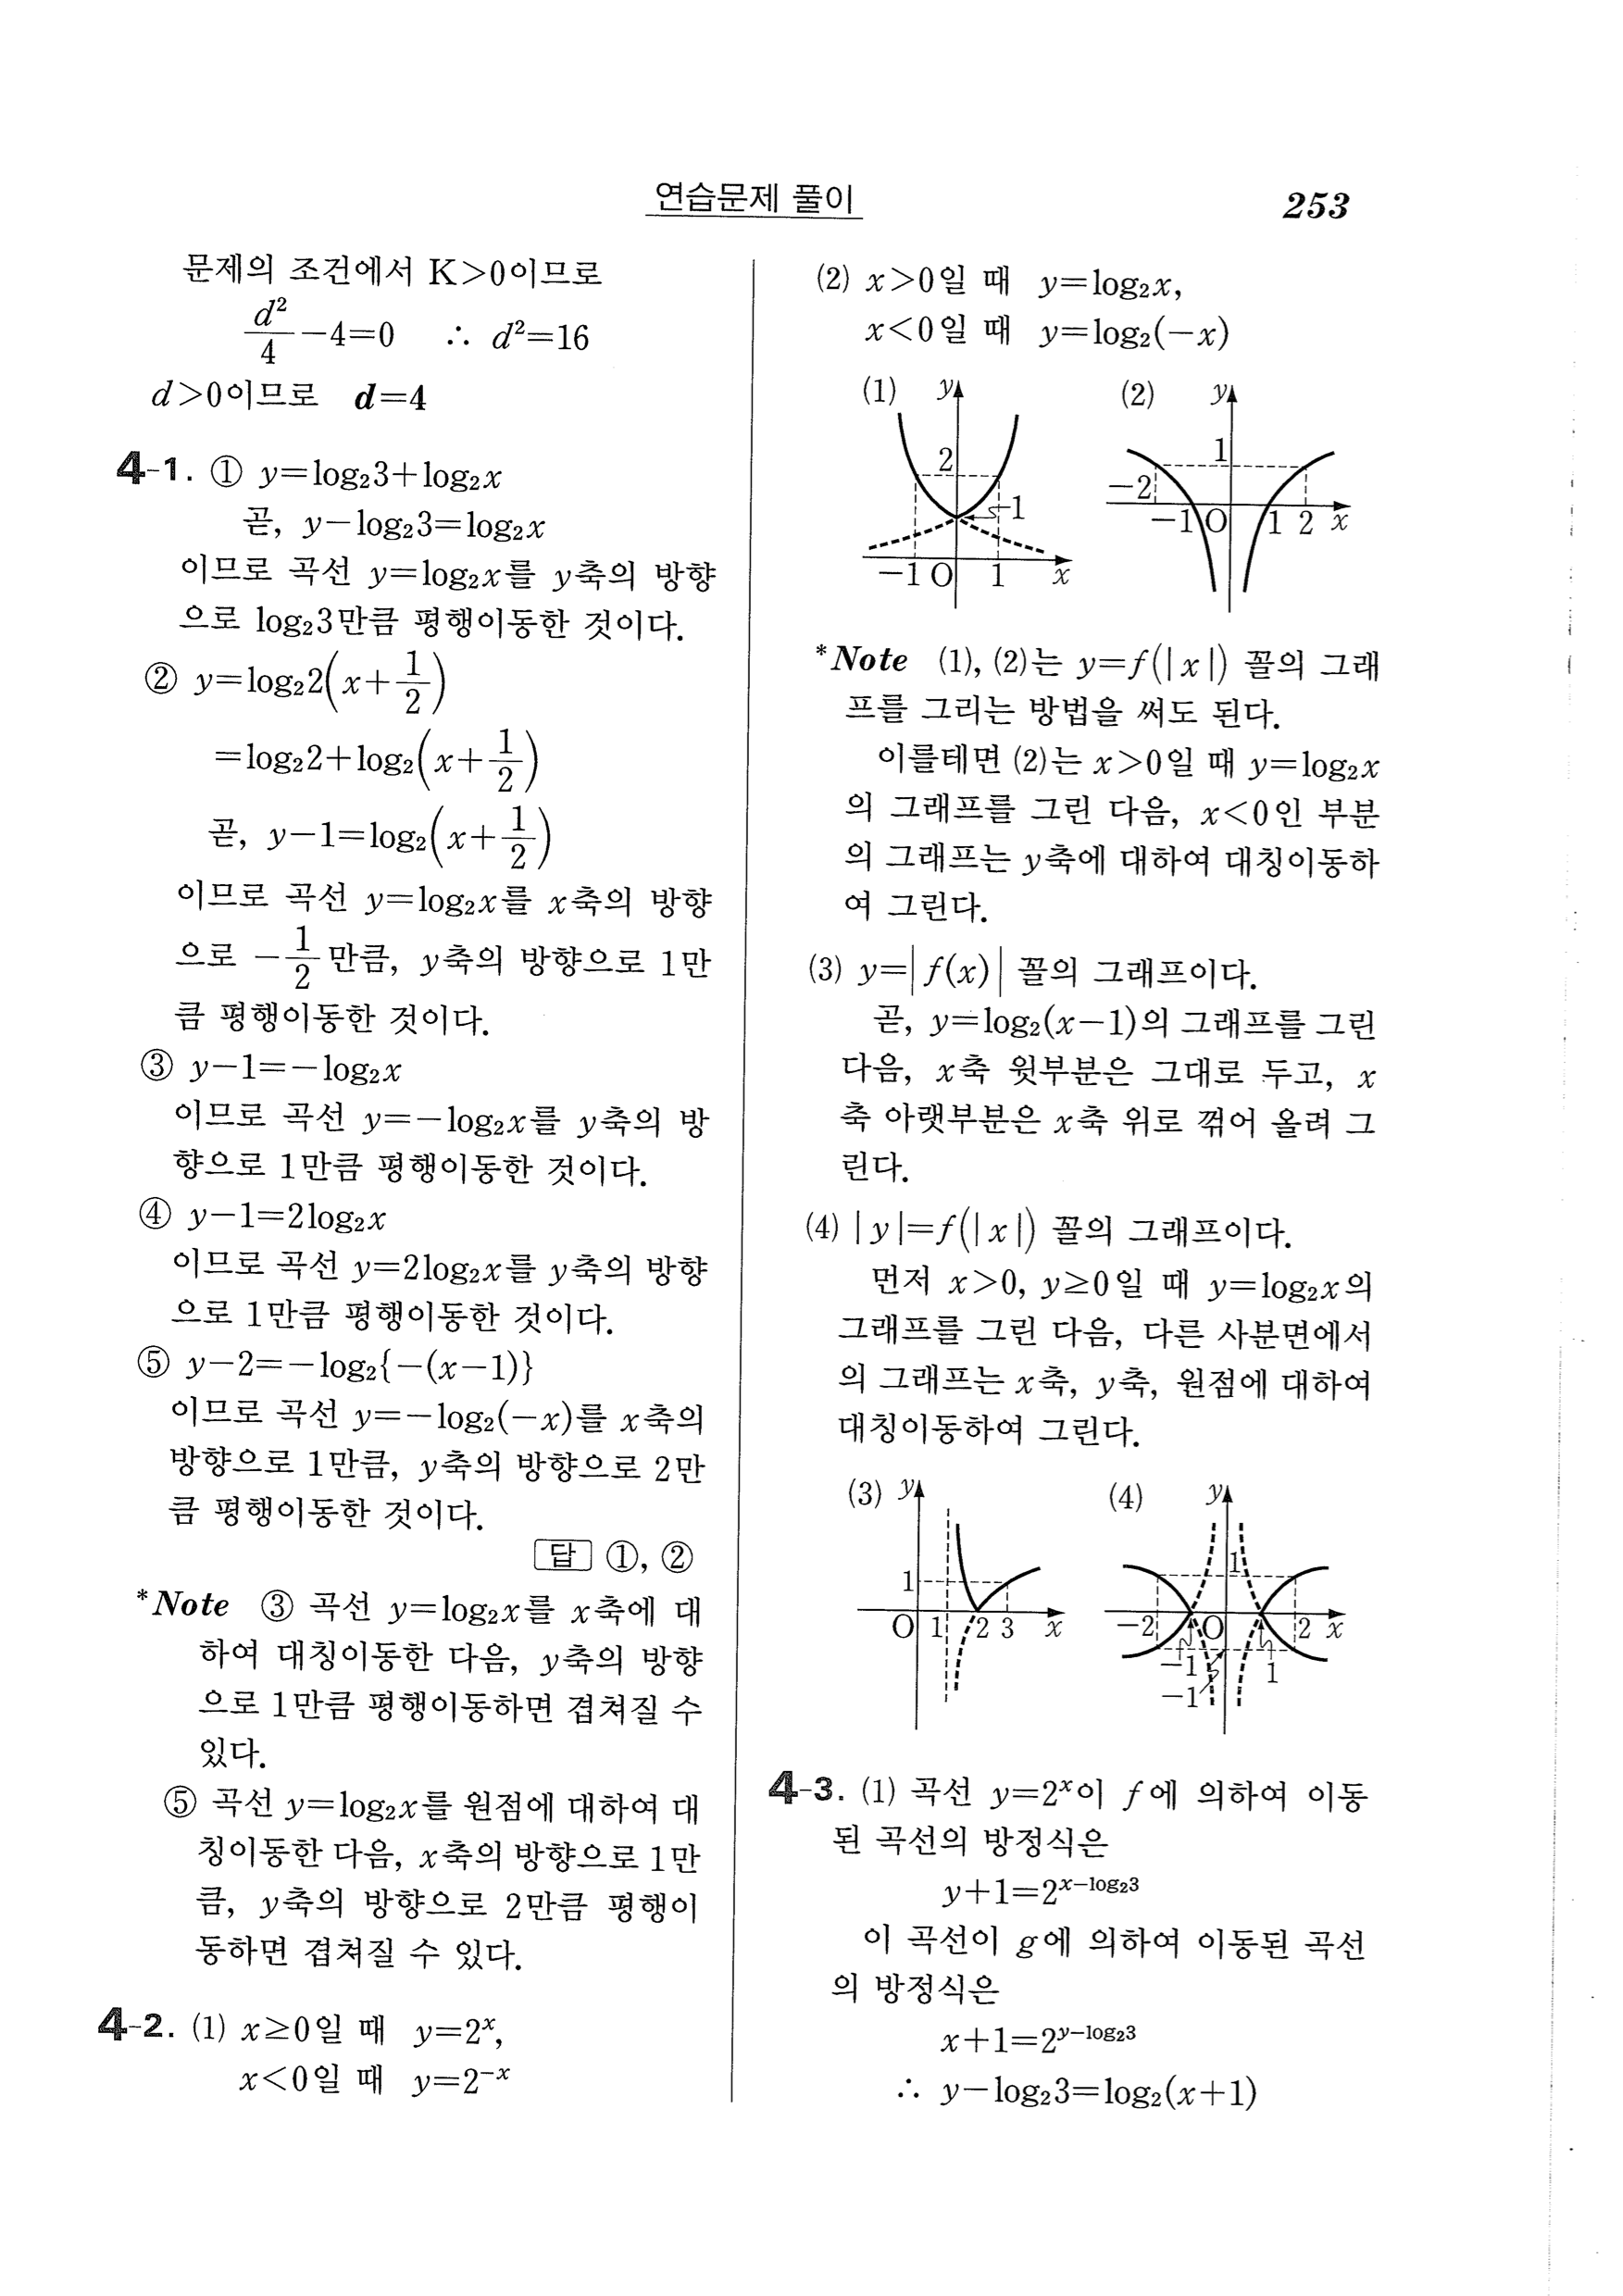 연습문제 풀이
253
문제의 조건에서 K>0이므로
d²/4 −4=0 ∴ d²=16
d>0이므로 d=4
4-1. ① y=log₂3+log₂x
곧, y−log₂3=log₂x
이므로 곡선 y=log₂x를 y축의 방향
으로 log₂3만큼 평행이동한 것이다.
② y=log₂2(x+1/2)
=log₂2+log₂(x+1/2)
곧, y−1=log₂(x+1/2)
이므로 곡선 y=log₂x를 x축의 방향
으로 −1/2만큼, y축의 방향으로 1만
큼 평행이동한 것이다.
③ y−1=−log₂x
이므로 곡선 y=−log₂x를 y축의 방
향으로 1만큼 평행이동한 것이다.
④ y−1=2log₂x
이므로 곡선 y=2log₂x를 y축의 방향
으로 1만큼 평행이동한 것이다.
⑤ y−2=−log₂{−(x−1)}
이므로 곡선 y=−log₂(−x)를 x축의
방향으로 1만큼, y축의 방향으로 2만
큼 평행이동한 것이다.
답 ①, ②
*Note ③ 곡선 y=log₂x를 x축에 대
하여 대칭이동한 다음, y축의 방향
으로 1만큼 평행이동하면 겹쳐질 수
있다.
⑤ 곡선 y=log₂x를 원점에 대하여 대
칭이동한 다음, x축의 방향으로 1만
큼, y축의 방향으로 2만큼 평행이
동하면 겹쳐질 수 있다.
4-2. (1) x≥0일 때 y=2ˣ,
x<0일 때 y=2⁻ˣ
(2) x>0일 때 y=log₂x,
x<0일 때 y=log₂(−x)
(1) y 2 1 −1 O 1 x
(2) y 1 −2 −1 O 1 2 x
*Note (1), (2)는 y=f(|x|) 꼴의 그래
프를 그리는 방법을 써도 된다.
이를테면 (2)는 x>0일 때 y=log₂x
의 그래프를 그린 다음, x<0인 부분
의 그래프는 y축에 대하여 대칭이동하
여 그린다.
(3) y=|f(x)| 꼴의 그래프이다.
곧, y=log₂(x−1)의 그래프를 그린
다음, x축 윗부분은 그대로 두고, x
축 아랫부분은 x축 위로 꺾어 올려 그
린다.
(4) |y|=f(|x|) 꼴의 그래프이다.
먼저 x>0, y≥0일 때 y=log₂x의
그래프를 그린 다음, 다른 사분면에서
의 그래프는 x축, y축, 원점에 대하여
대칭이동하여 그린다.
(3) y 1 O 1 2 3 x
(4) y 1 −2 O 2 x −1 1 −1
4-3. (1) 곡선 y=2ˣ이 f에 의하여 이동
된 곡선의 방정식은
y+1=2^(x−log₂3)
이 곡선이 g에 의하여 이동된 곡선
의 방정식은
x+1=2^(y−log₂3)
∴ y−log₂3=log₂(x+1)